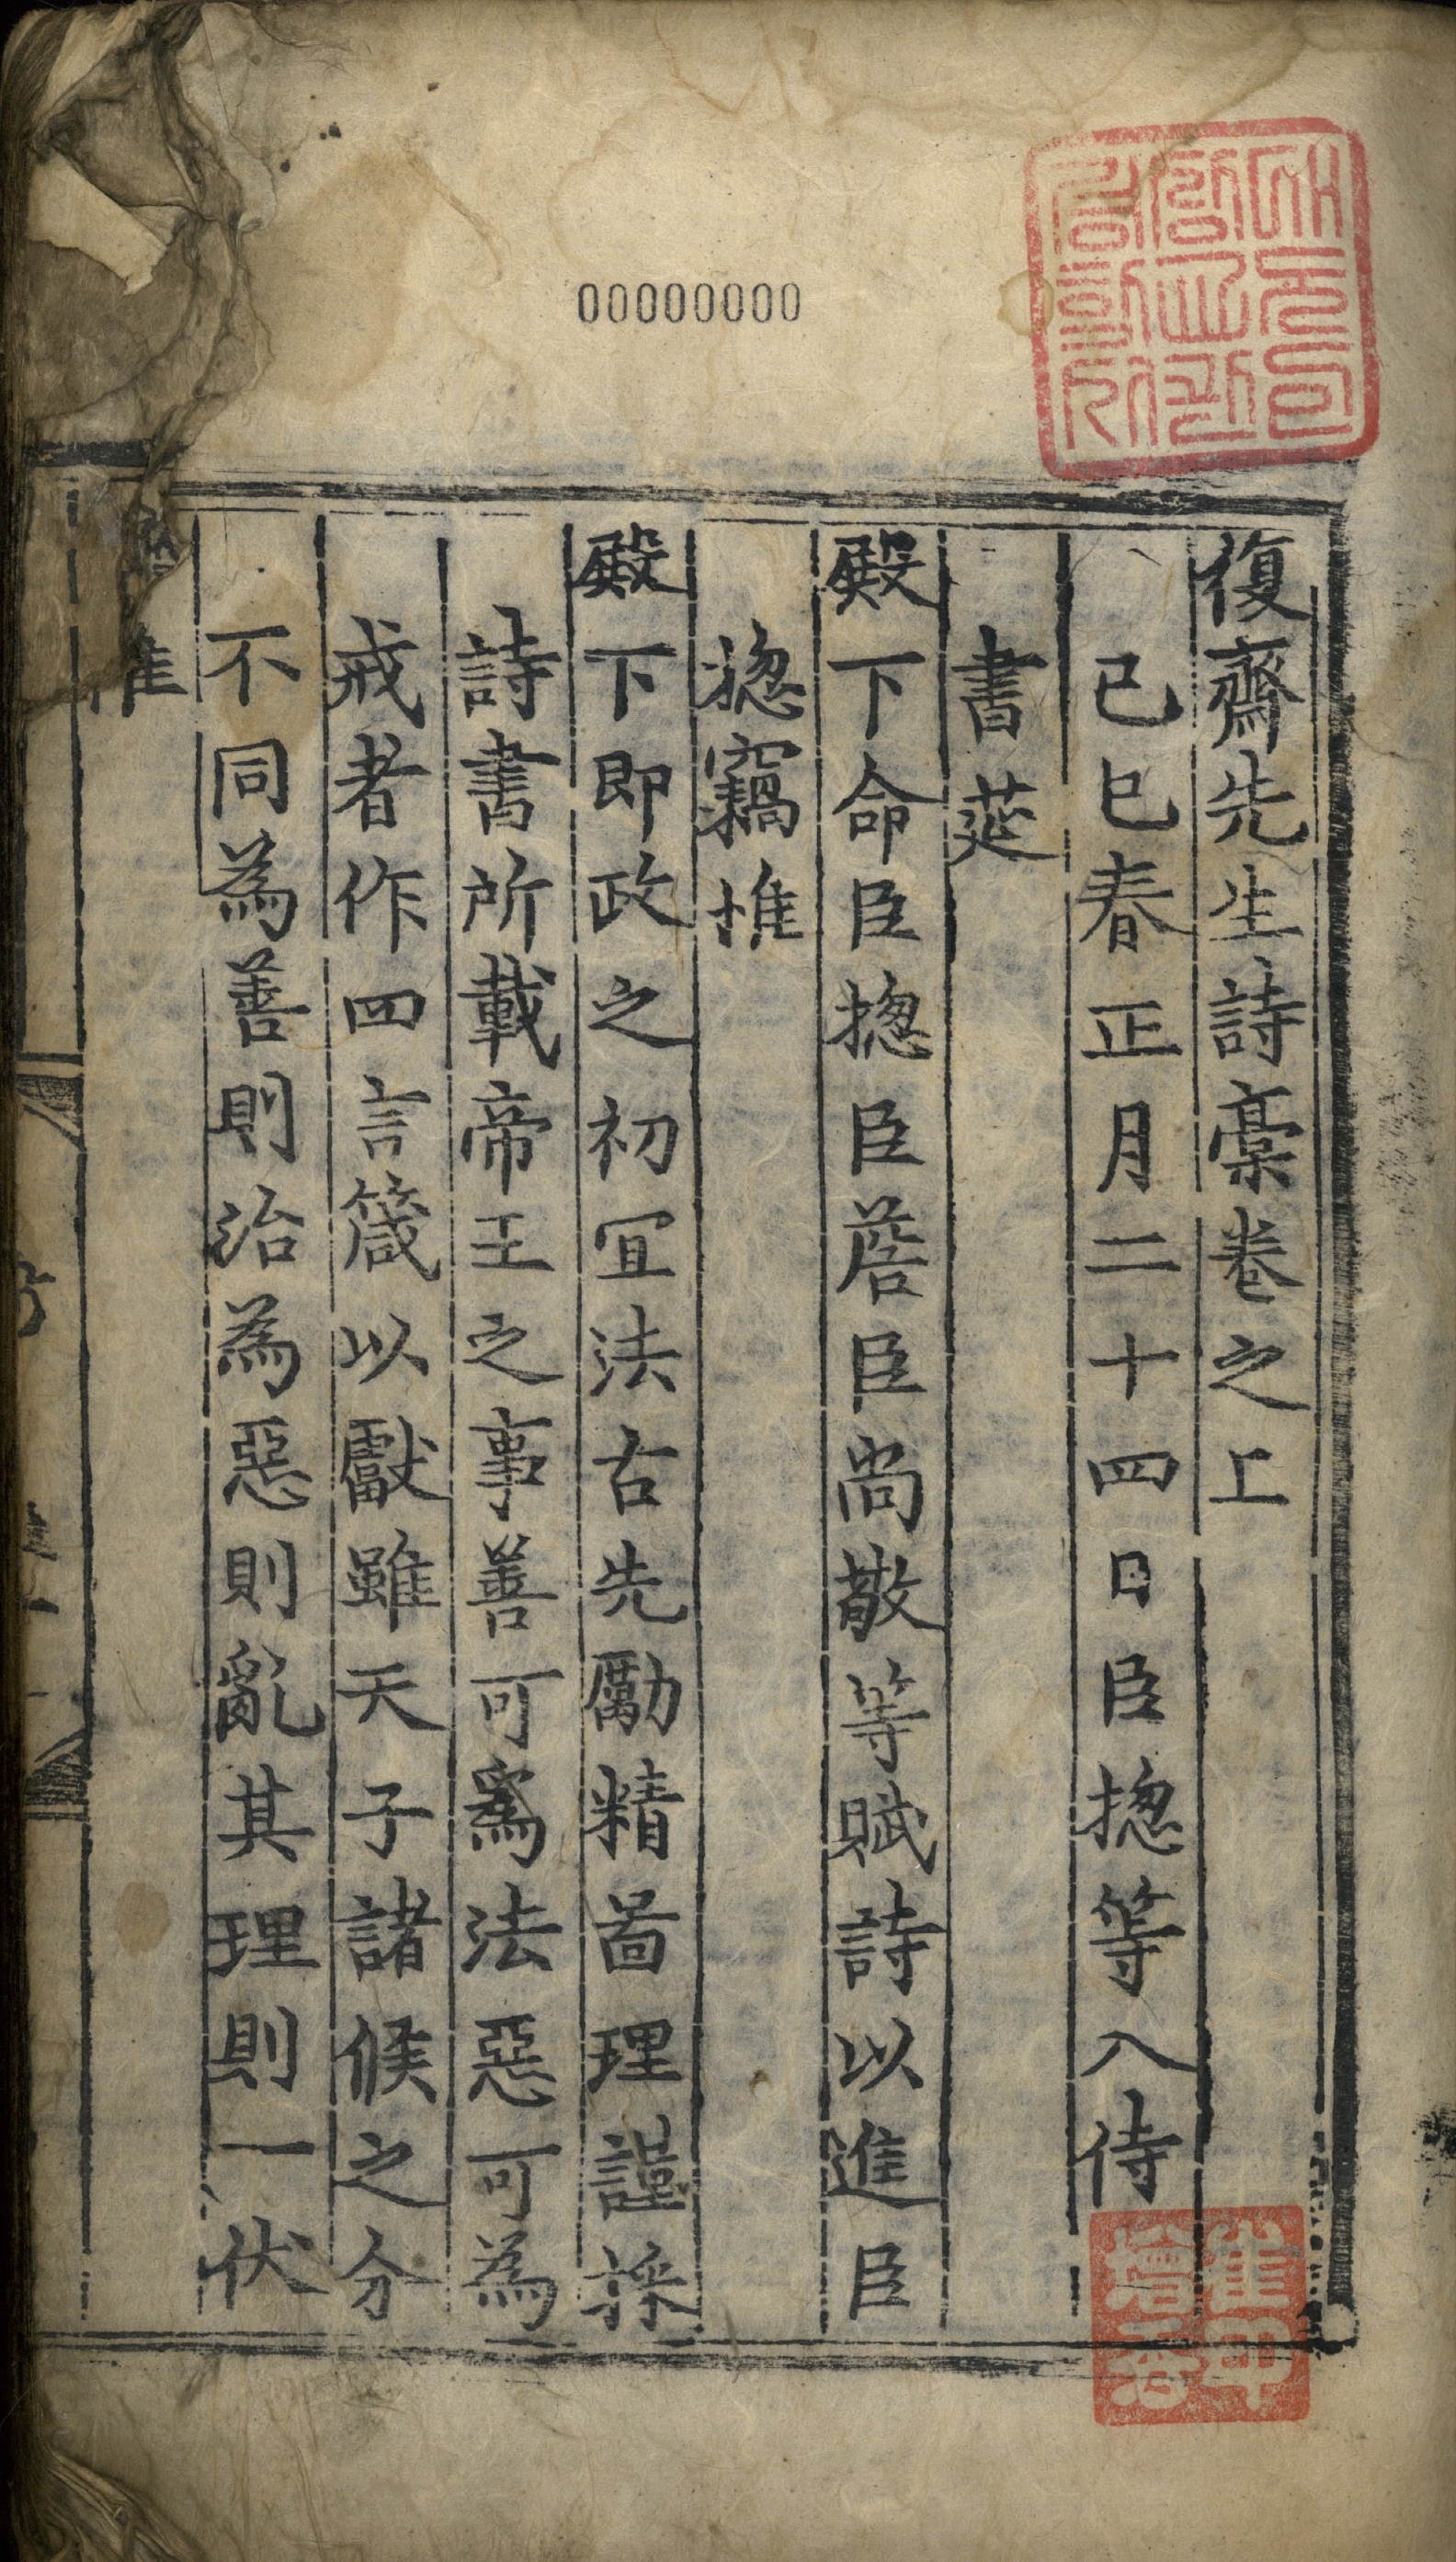 00000000
復齋先生詩藁卷之上
己巳春正月二十四日臣摠等入侍
書莚
殿下命臣摠臣蓎臣尚敬等賦詩以進臣
摠竊惟
殿下即政之初宜法古先勵精啚理謹採
詩書所載帝王之事善可爲法惡可為
戒者作四言箴以獻雖天子諸侯之分
不同為善則治為惡則亂其理則一伏
惟